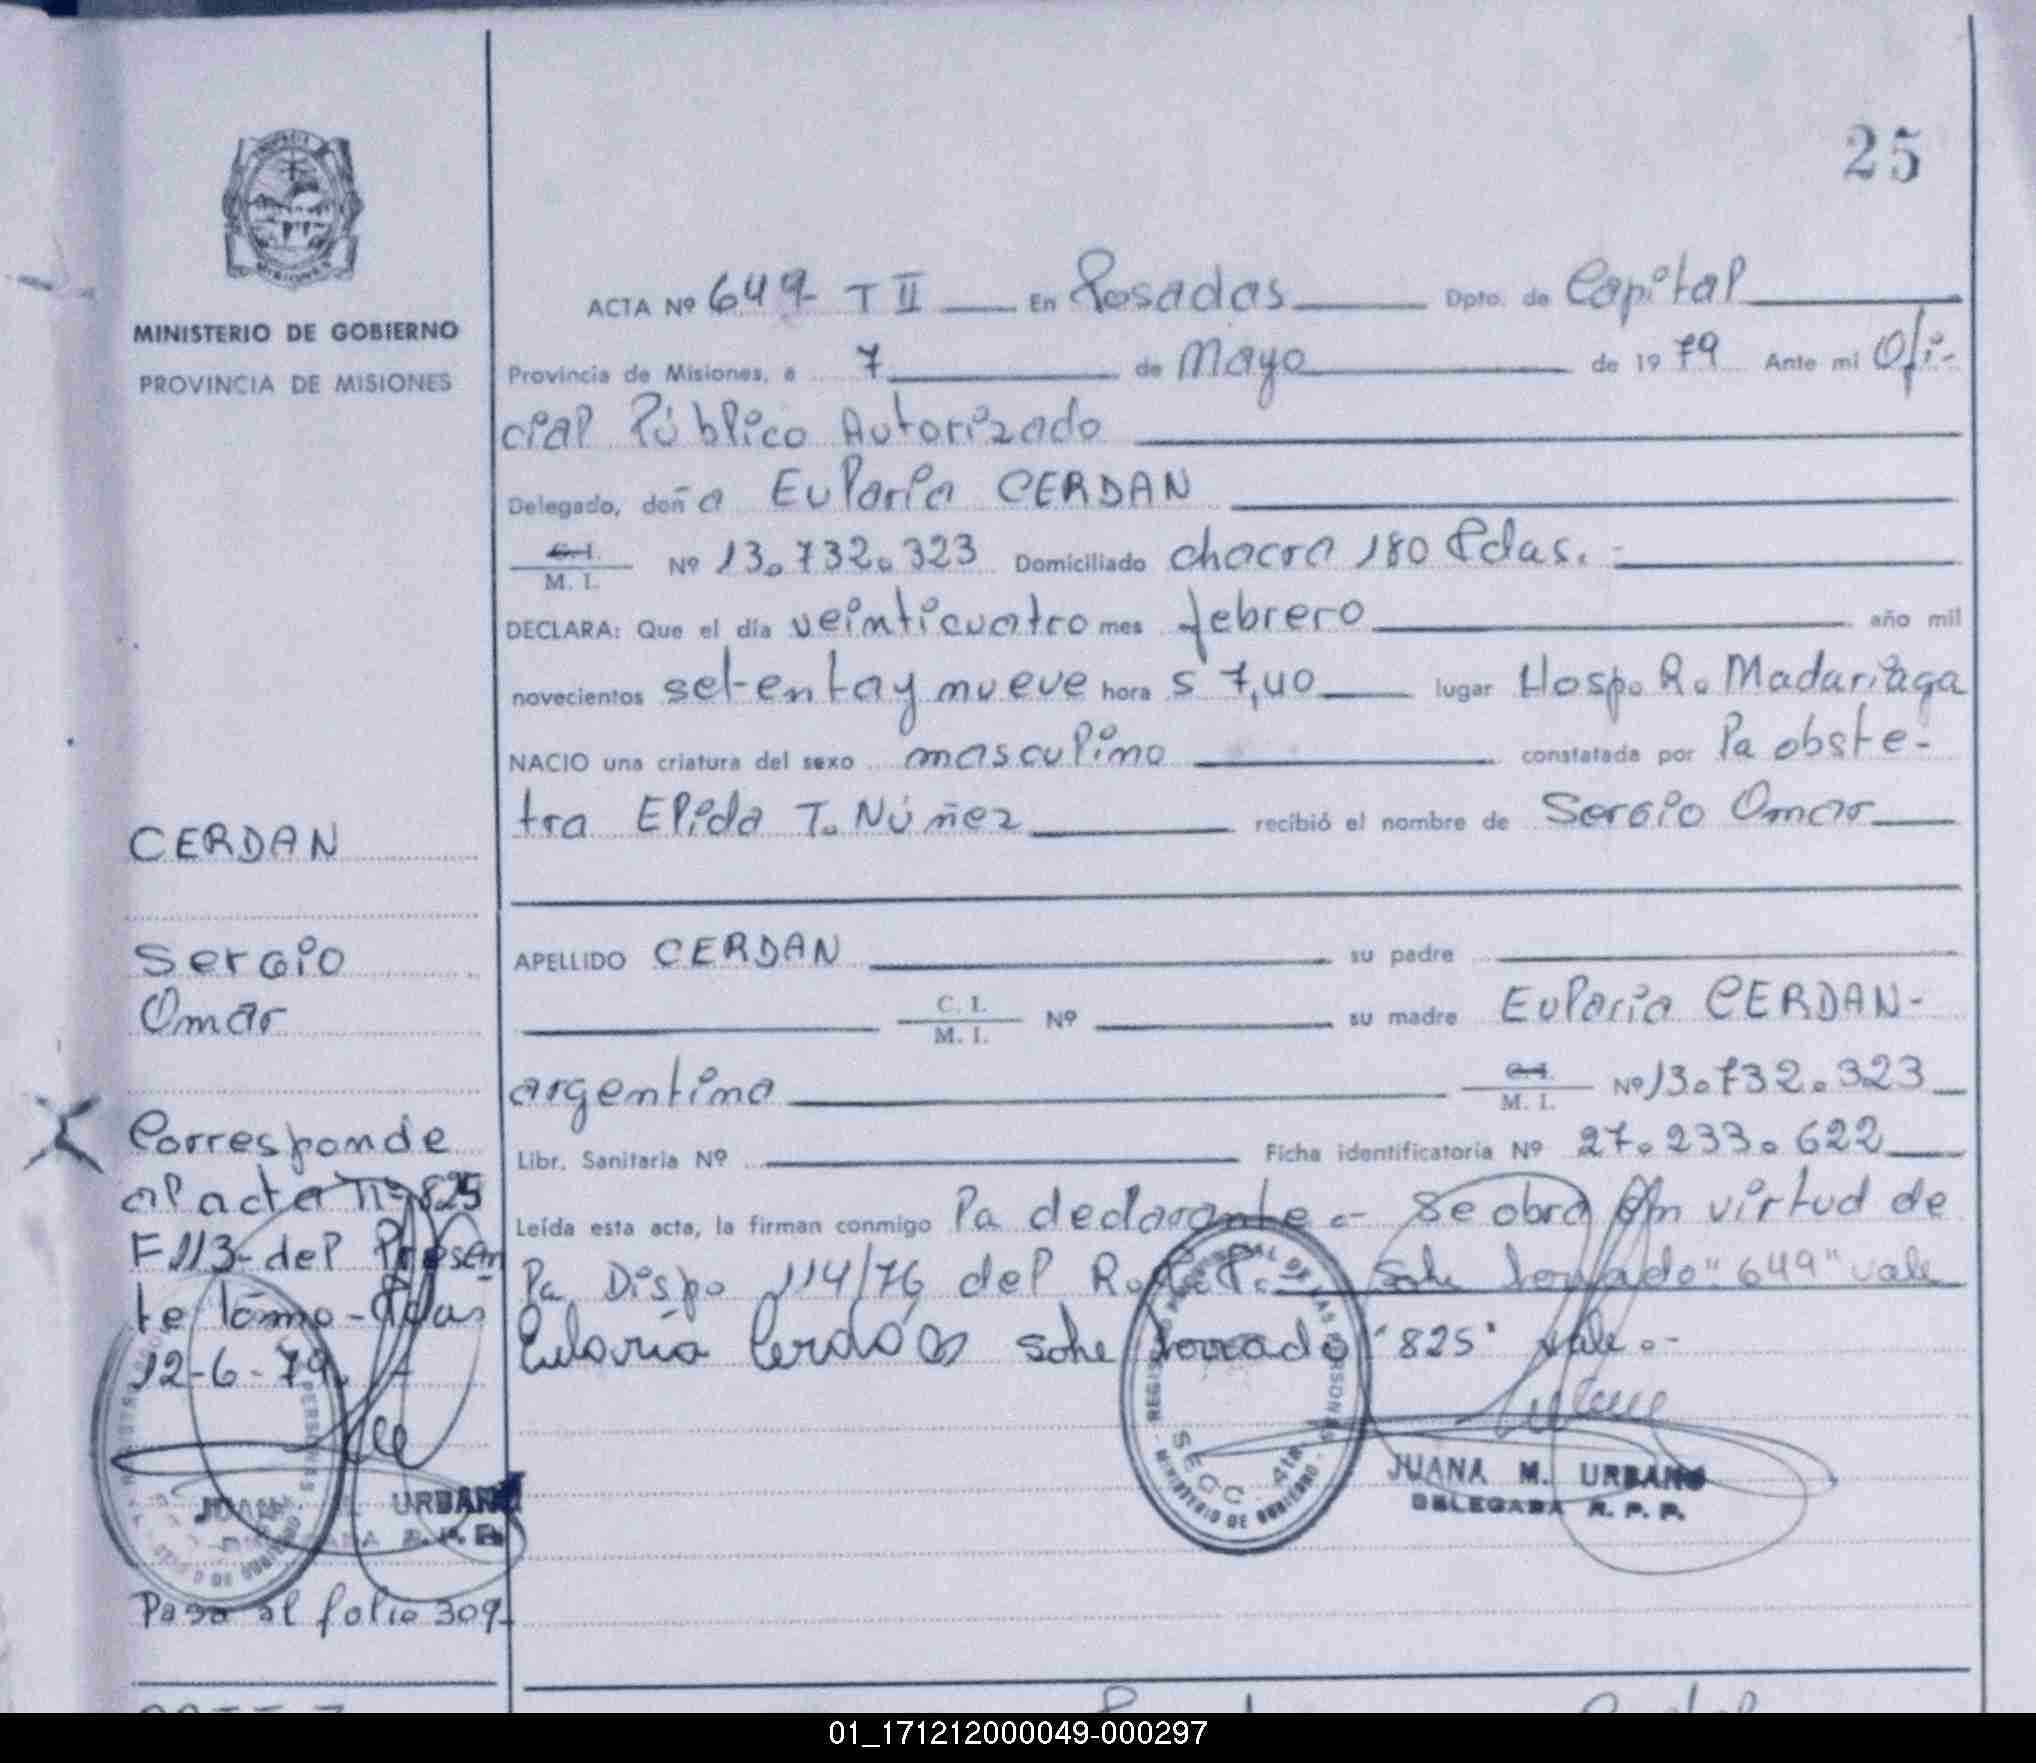 25
MINISTERIO DE GOBIERNO
PROVINCIA DE MISIONES
ACTA Nº 649 T II En Posadas Dpto. de Capital
Provincia de Misiones, a 7 de Mayo de 1979 Ante mi Ofi-
cial Público Autorizado
Delegado, doña Eularia CERDAN
C. I.
M. I. Nº 13.732.323 Domiciliado chacra 180 Pdas.
DECLARA: Que el día veinticuatro mes febrero año mil
novecientos setenta y nueve hora s 7,40 lugar Hosp. R. Madariaga
NACIO una criatura del sexo masculino constatada por la obste-
tra Elida T. Núñez recibió el nombre de Sergio Omar
APELLIDO CERDAN su padre
C. I.
M. I. Nº su madre Eularia CERDAN-
argentina C. I. M. I. Nº 13.732.323
Libr. Sanitaria Nº Ficha identificatoria Nº 27.233.622
Leída esta acta, la firman conmigo la declarante.- Se obra en virtud de
la Disp. 114/76 del R. Sobre borrado "649" vale
Eularia Cerdán sobre borrado "825" vale.-
JUANA M. URBANO
DELEGADA R. P. P.
SECC. 4ta
MINISTERIO DE GOBIERNO
CERDAN
Sergio
Omar
Corresponde
al acta Nº 825
F 113- del Presen
te Tomo - Pdas
12-6-79.
JUANA M. URBANO
Pasa al folio 309-
01_171212000049-000297